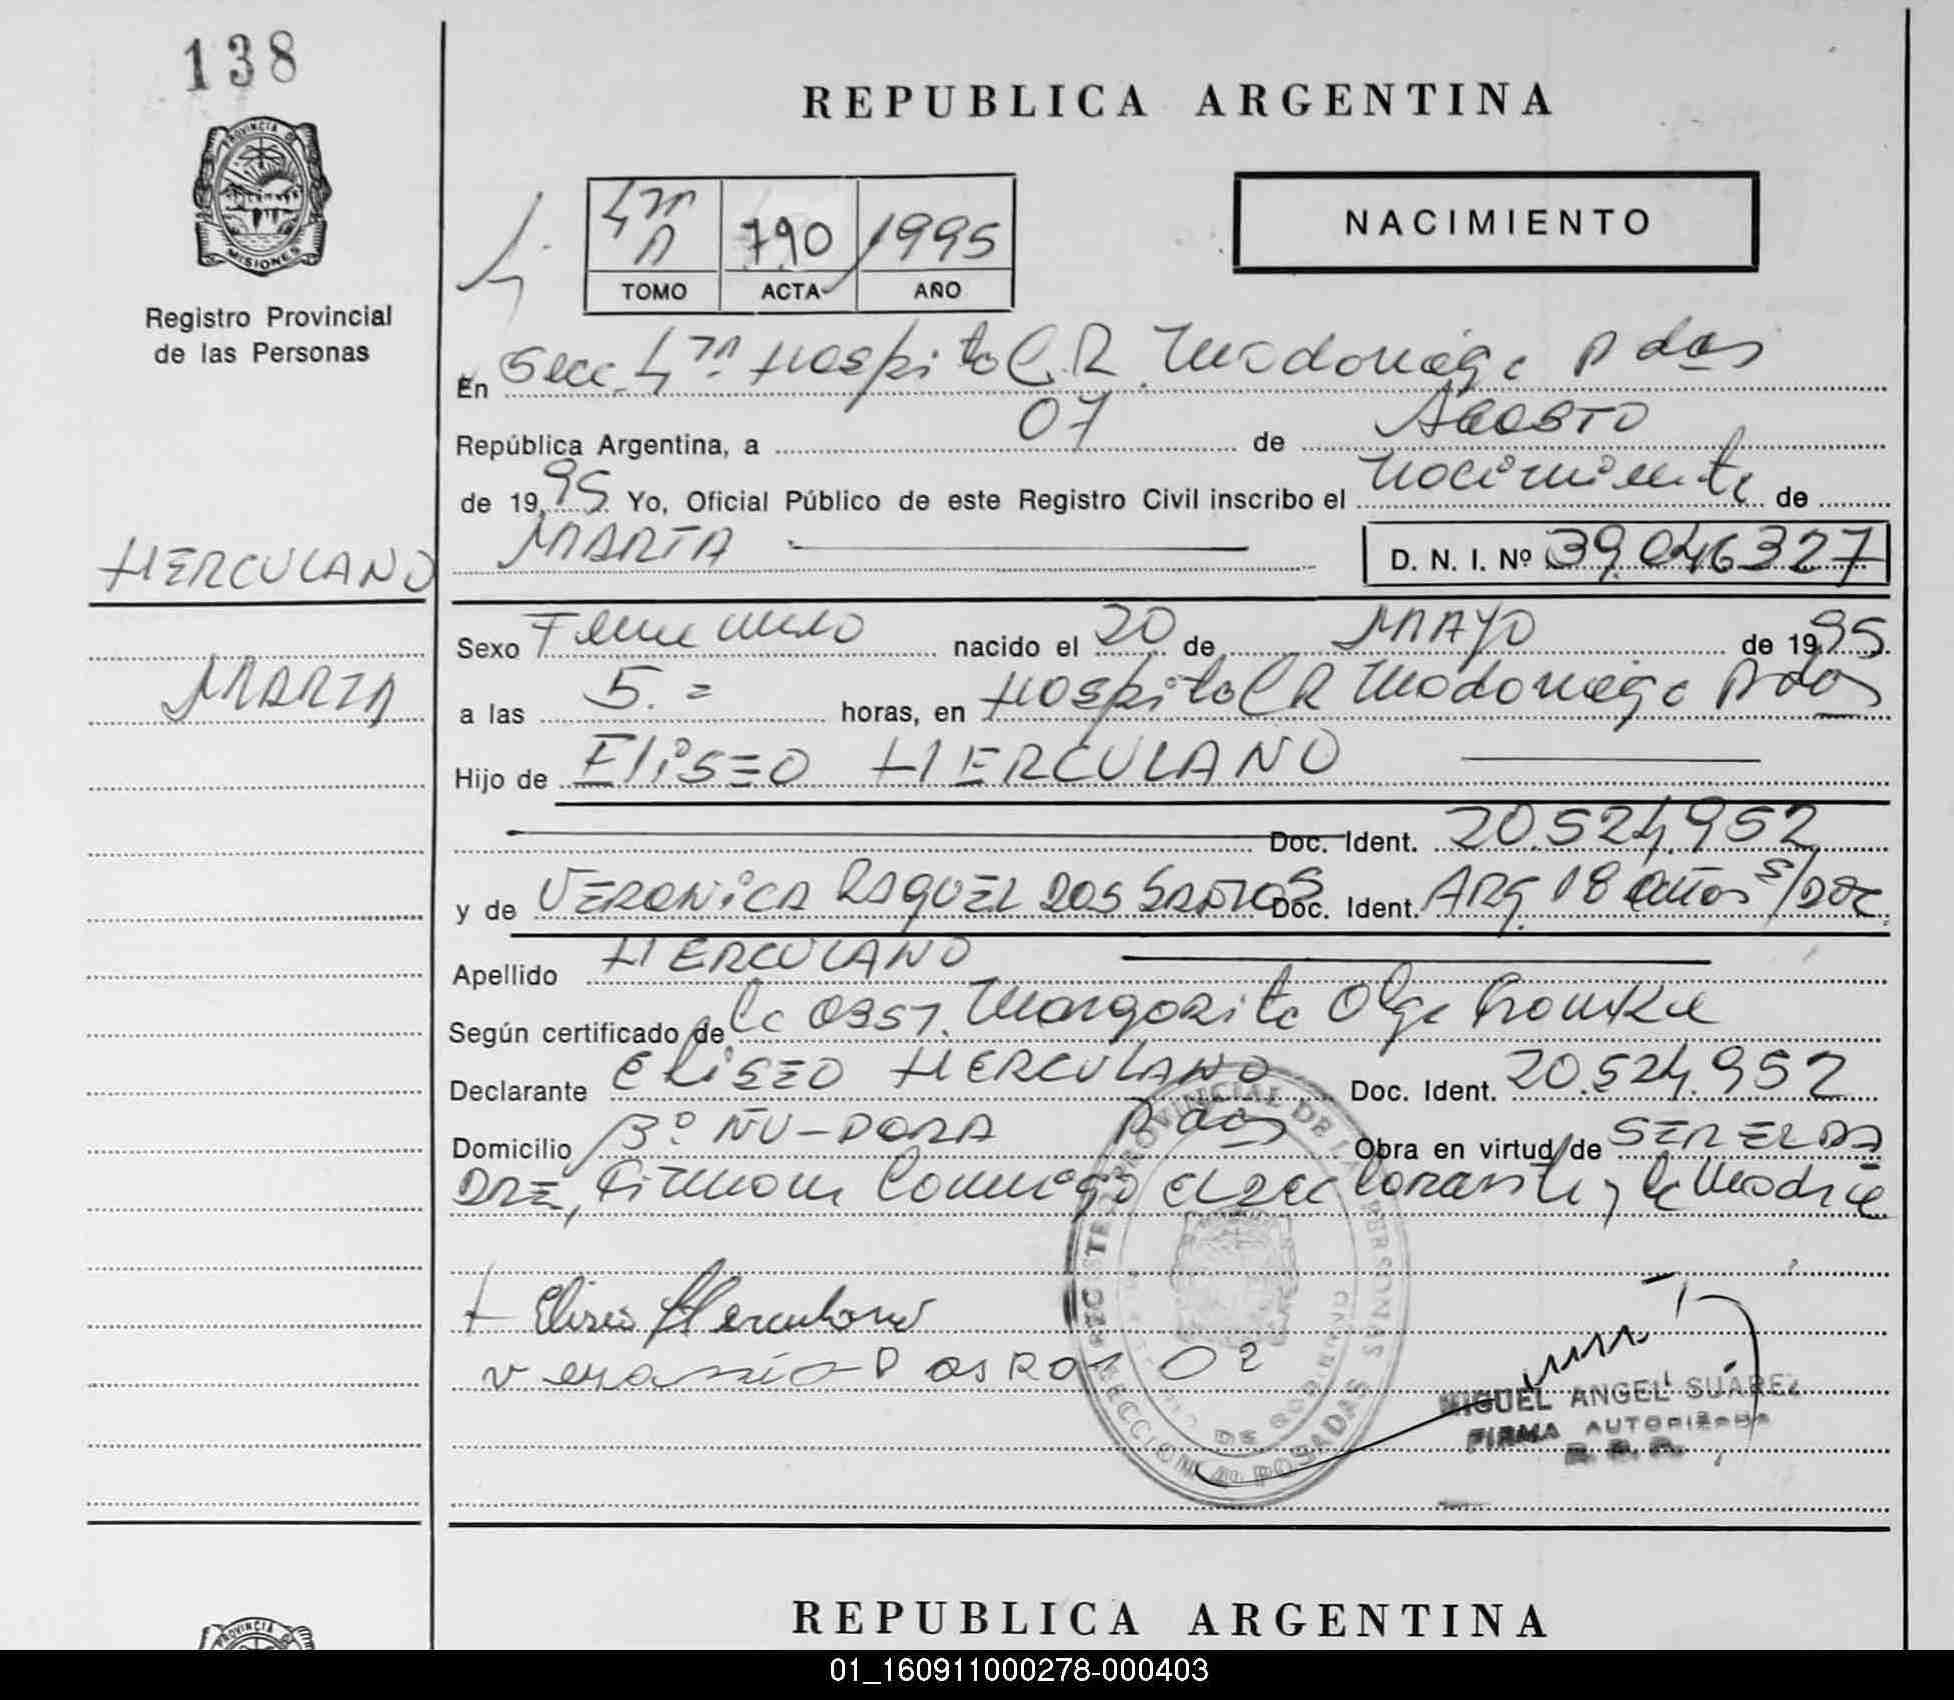 138
REPUBLICA ARGENTINA
PROVINCIA DE
MISIONES
Registro Provincial
de las Personas
790 1995
TOMO ACTA AÑO
NACIMIENTO
En Secc. Hospital R. Madariaga Pdas
República Argentina, a 07 de AGOSTO
de 1995 Yo, Oficial Público de este Registro Civil inscribo el nacimiento de
HERCULANO
MARTA D. N. I. Nº 39.046327
Sexo Femenino nacido el 20 de MAYO de 1995
MARTA
a las 5.= horas, en Hospital R Madariaga Pdas
Hijo de ELiSEO HERCULANO
Doc. Ident. 20.524.952
y de VERONiCA RAQUEL DOS SANTOS Doc. Ident. ARG. 18 años s/DOC.
Apellido HERCULANO
Según certificado de la OBST. Margarita Olga
Declarante ELiSEO HERCULANO Doc. Ident. 20.524.952
Domicilio Bº ÑU-PORA Pdas Obra en virtud de SER EL PA
DRE, Firman Conmigo el declarante y la Madre
Eliseo Herculano
REGISTRO PROVINCIAL DE LAS PERSONAS
SECCION 4ta POSADAS
MIGUEL ANGEL SUÁREZ
FIRMA AUTORIZADA
REPUBLICA ARGENTINA
PROVINCIA
01_160911000278-000403